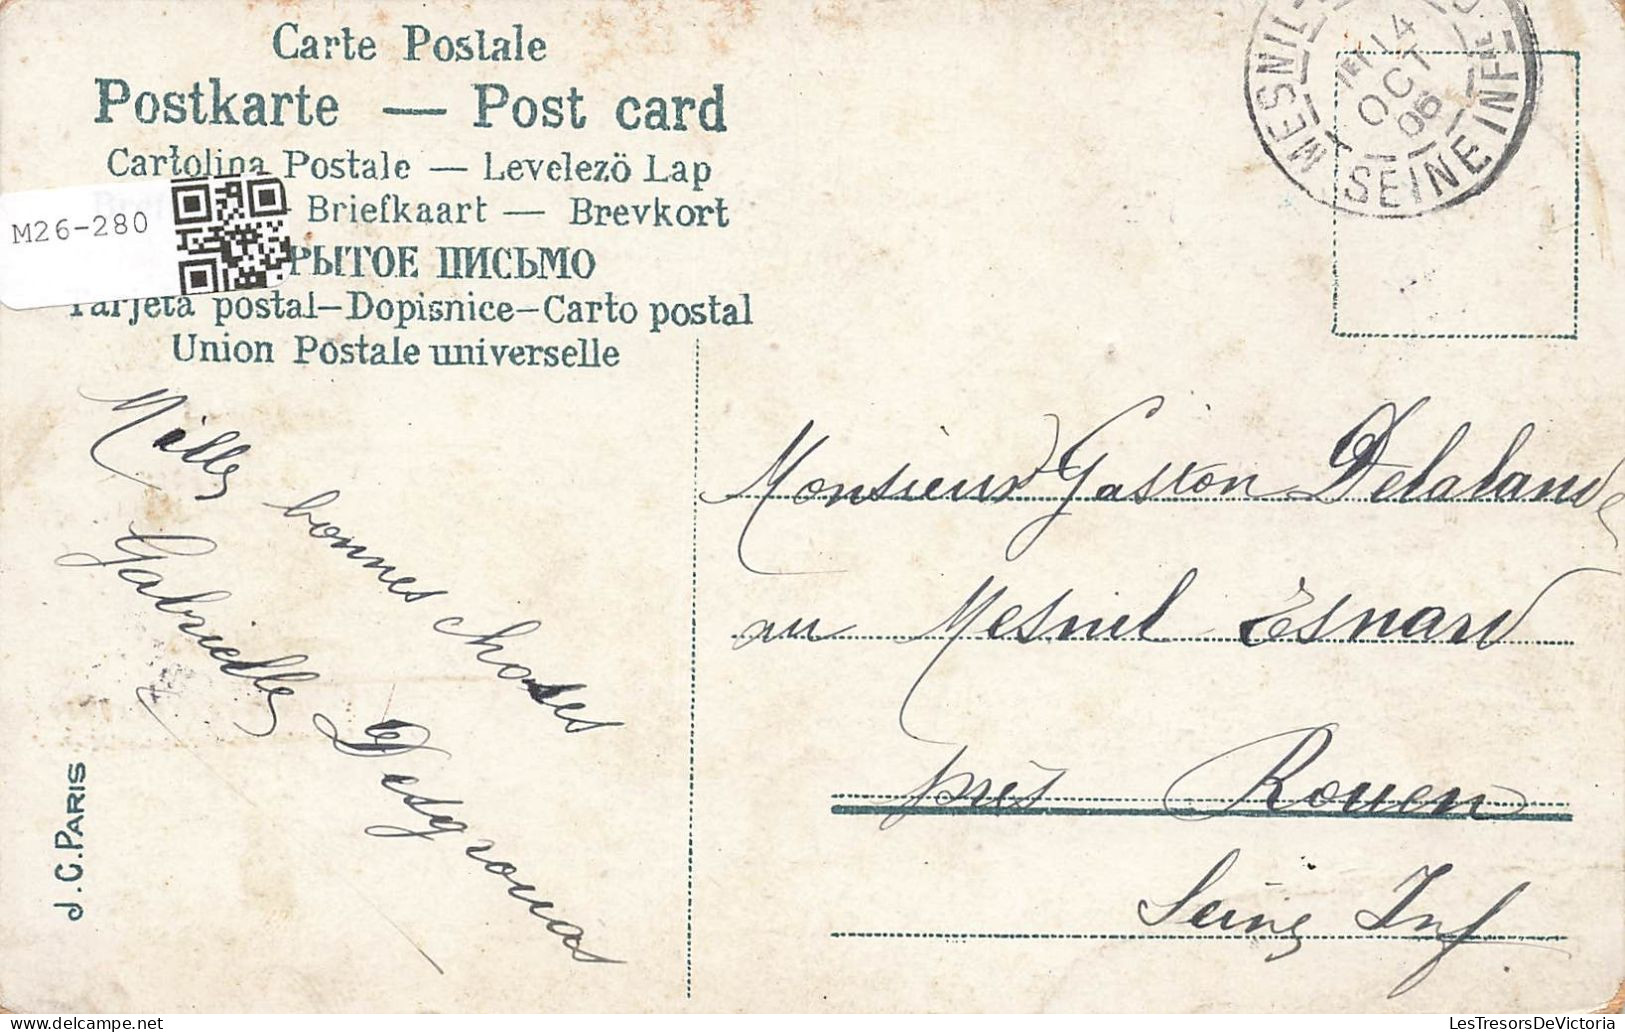 Carte Postale
Postkarte — Post card
Cartolina Postale — Levelezö Lap
Briefkaart — Brevkort
РЫТОЕ ПИСЬМО
Tarjeta postal—Dopisnice—Carto postal
Union Postale universelle
M26-280
MESNIL-
14
OCT
06
SEINE INFRE
Mille bonnes choses
Gabrielle
J.C. PARIS
Monsieur Gaston Delalande
au Mesnil Esnard
près Rouen
Seine Inf
LesTresorsDeVictoria